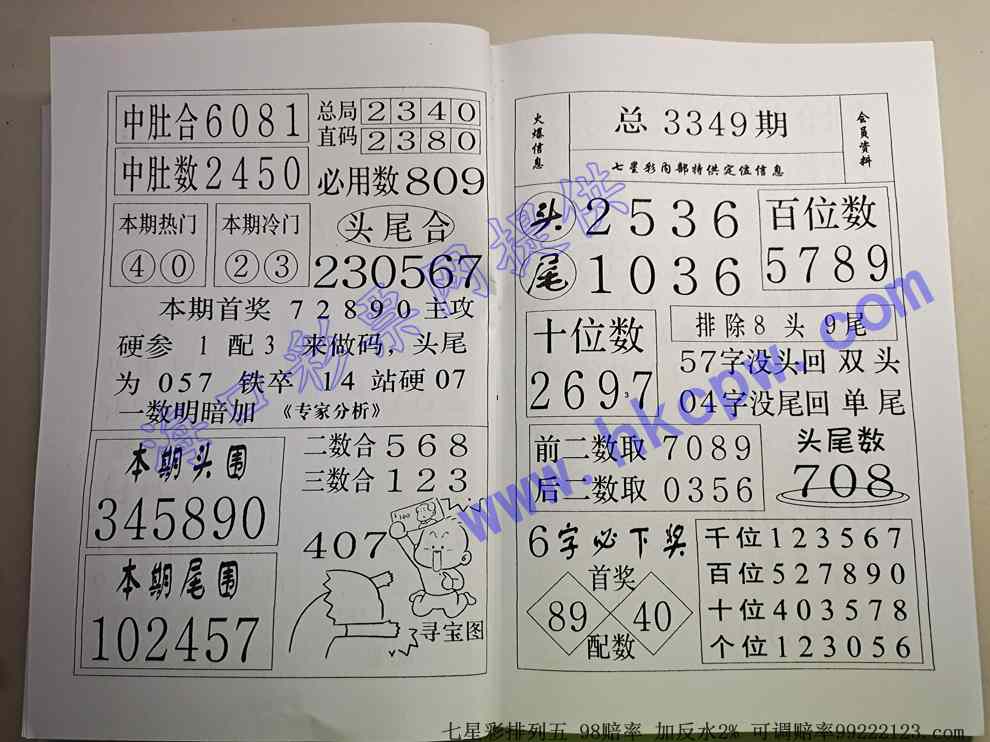 中肚合6081
总局2340
直码2380
中肚数2450
必用数809
本期热门
④⓪
本期冷门
②③
头尾合
230567
本期首奖72890主攻
硬参1配3来做码,头尾
为057铁卒14站硬07
一数明暗加《专家分析》
本期头围
345890
二数合568
三数合123
407
本期尾围
102457
寻宝图
火爆信息
总3349期
七星彩内部特供定位信息
会员资料
头2536
尾1036
百位数
5789
十位数
2697
排除8头9尾
57字没头回双头
04字没尾回单尾
前二数取7089
后二数取0356
头尾数
708
6字必下奖
首奖
89 40
配数
千位123567
百位527890
十位403578
个位123056
海口彩票网提供
www.hkcpw.com
七星彩排列五 98赔率 加反水2% 可调赔率99222123.com